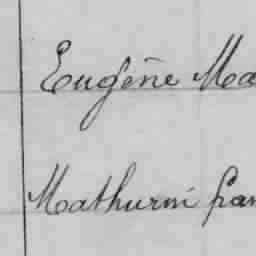 Eugène Ma
Mathurin